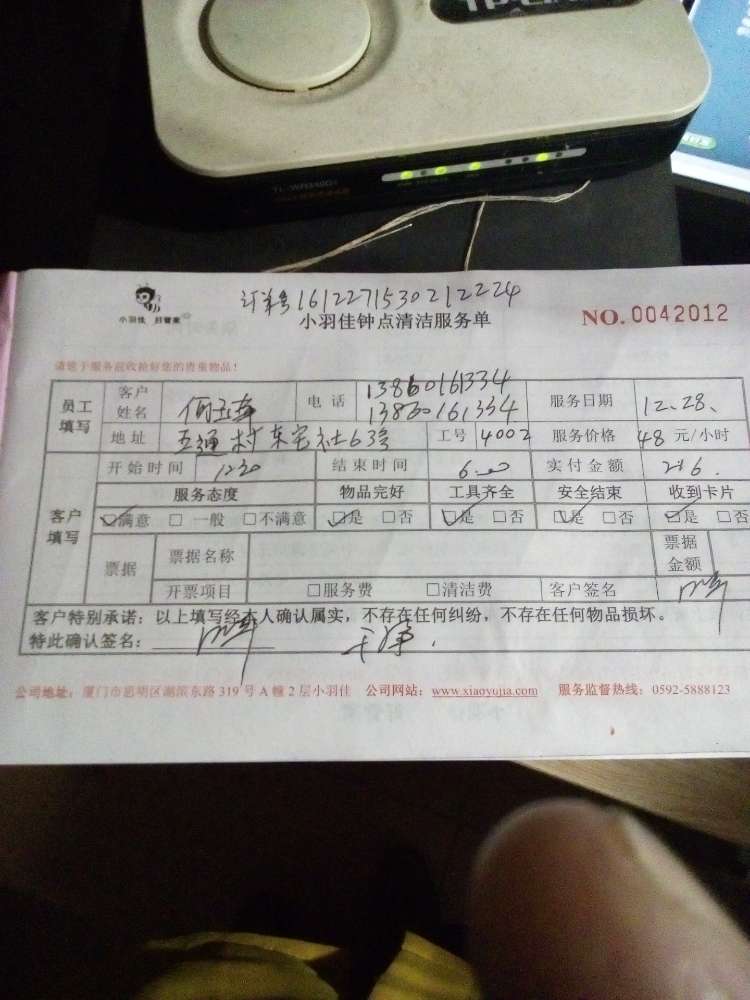 TP-LINK
TL-WR340G+
订单号1612271530212224
小羽佳 好管家
小羽佳钟点清洁服务单
NO. 0042012
请您于服务前收拾好您的贵重物品!
员工填写 客户姓名 电话 13860161334 13860161334 服务日期 12.28.
地址 五通村东宅社63号 工号 4002 服务价格 48 元/小时
开始时间 1230 结束时间 6:00 实付金额 216.
客户填写 服务态度 物品完好 工具齐全 安全结束 收到卡片
☑满意 □一般 □不满意 ☑是 □否 ☑是 □否 ☑是 □否 ☑是 □否
票据 票据名称 票据金额
开票项目 □服务费 □清洁费 客户签名
客户特别承诺:以上填写经本人确认属实,不存在任何纠纷,不存在任何物品损坏。
特此确认签名: 干净.
公司地址:厦门市思明区湖滨东路 319 号 A 幢 2 层小羽佳 公司网站:www.xiaoyujia.com 服务监督热线:0592-5888123